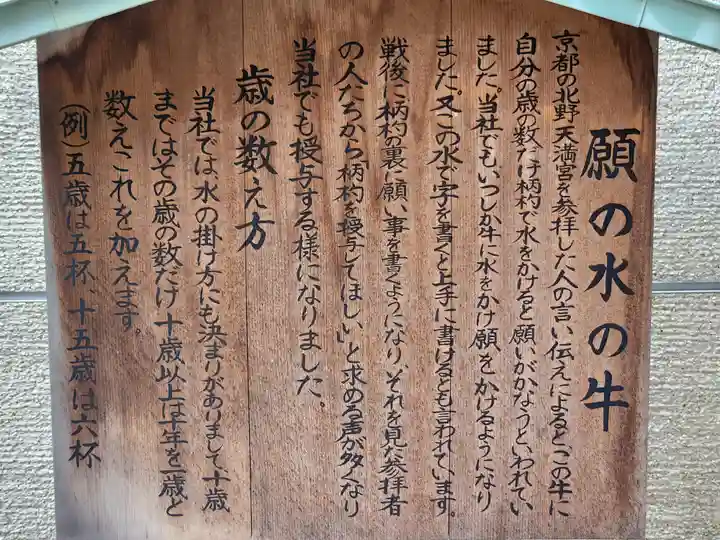 願の水の牛
京都の北野天満宮を参拝した人の言い伝えによると、この牛に
自分の歳の数だけ柄杓で水をかけると願いがかなうといわれてい
ました。当社でも、いつしか牛に水をかけ願をかけるようになり
ました。又この水で字を書くと上手に書けるとも言われています。
戦後に柄杓の裏に願い事を書くようになり、それを見た参拝者
の人たちから「柄杓を授与してほしい」と求める声が多くなり
当社でも授与する様になりました。
歳の数え方
当社では、水の掛け方にも決まりがありまして、十歳
まではその歳の数だけ十歳以上は十年を一歳と
数えこれを加えます。
(例)五歳は五杯、十五歳は六杯